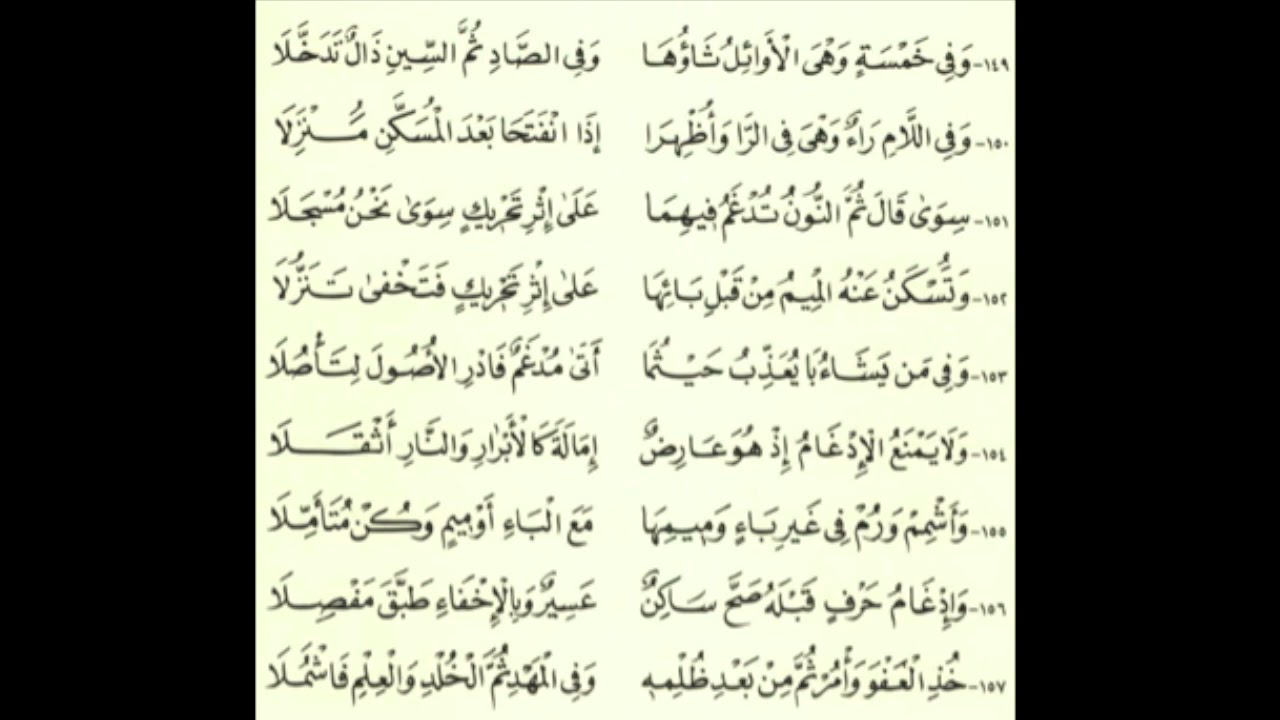 ١٤٩- وَفِي خَمْسَةٍ وَهْيَ الْأَوَائِلُ ثَاؤُهَا وَفِي الصَّادِ ثُمَّ السِّينِ ذَالٌ تَدَخَّلَا
١٥٠- وَفِي اللَّامِ رَاءٌ وَهْيَ فِي الرَّا وَأُظْهِرَا إِذَا انْفَتَحَا بَعْدَ الْمُسَكَّنِ مُنْزَلَا
١٥١- سِوَىٰ قَالَ ثُمَّ النُّونُ تُدْغَمُ فِيهِمَا عَلَىٰ إِثْرِ تَحْرِيكٍ سِوَىٰ نَحْنُ مُسْجَلَا
١٥٢- وَتُسْكَنُ عَنْهُ الْمِيمُ مِنْ قَبْلِ بَائِهَا عَلَىٰ إِثْرِ تَحْرِيكٍ فَتَخْفَىٰ تَنَزُّلَا
١٥٣- وَفِي مَن يَشَاءُ بَا يُعَذِّبُ حَيْثُمَا أَتَىٰ مُدْغَمٌ فَادْرِ الْأُصُولَ لِتَأْصُلَا
١٥٤- وَلَا يَمْنَعُ الْإِدْغَامُ إِذْ هُوَ عَارِضٌ إِمَالَةَ كَالْأَبْرَارِ وَالنَّارِ أَثْقَلَا
١٥٥- وَأَشْمِمْ وَرُمْ فِي غَيْرِ بَاءٍ وَمِيمِهَا مَعَ الْبَاءِ أَوْ مِيمٍ وَكُنْ مُتَأَمِّلَا
١٥٦- وَإِدْغَامُ حَرْفٍ قَبْلَهُ صَحَّ سَاكِنٌ عَسِيرٌ وَبِالْإِخْفَاءِ طَبَّقَ مَفْصِلَا
١٥٧- خُذِ الْعَفْوَ وَأْمُرْ ثُمَّ مِنْ بَعْدِ ظُلْمِهِ وَفِي الْمَهْدِ ثُمَّ الْخُلْدِ وَالْعِلْمِ فَاشْمُلَا